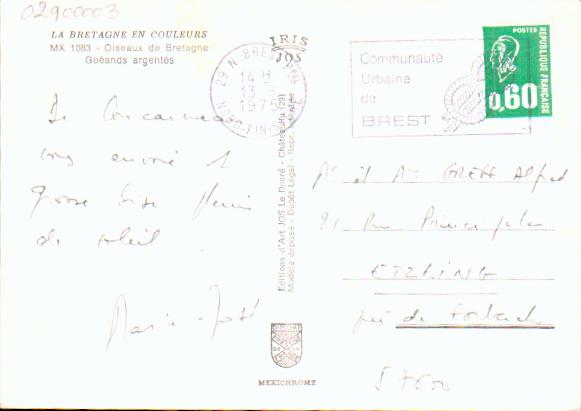 02900003
LA BRETAGNE EN COULEURS
MX 1083 - Oiseaux de Bretagne
Goéands argentés
IRIS
JOS
29 N BREST
14 H
13
197
FINISTERE
Communauté
Urbaine
de
BREST
POSTES
REPUBLIQUE FRANÇAISE
0,60
De Concarneau
vous envoie 1
grosse bise pleine
de soleil.
Marie-José
Editions d'Art JOS Le Doaré - Châteaulin (29)
Modèle déposé - Dépôt Légal - Repr. interdite
Mr et Mme GREFF Alfred
Rue Principale
ETZLING
près de Forbach
57600
MEXICHROME